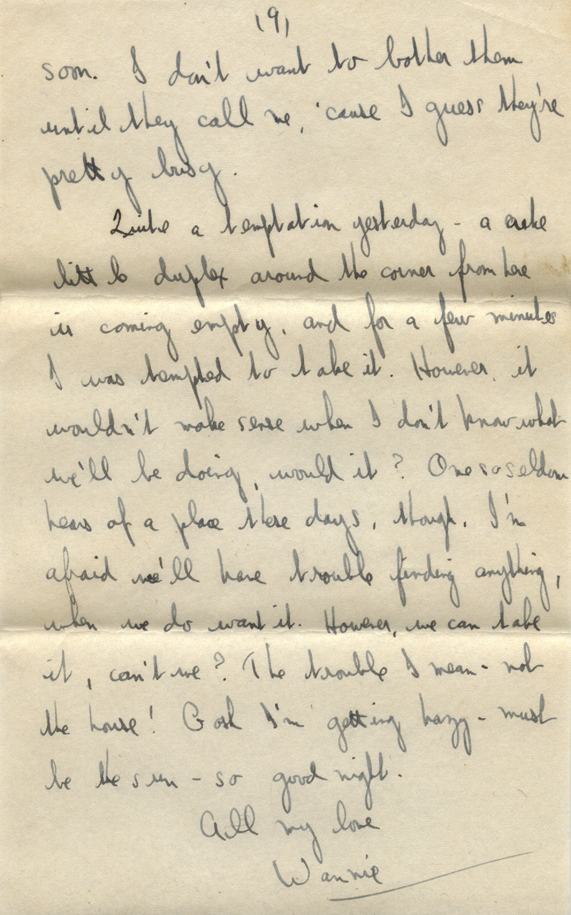 (9)
soon. I don't want to bother them
until they call me, 'cause I guess they're
pretty busy.
Quite a temptation yesterday - a cute
little duplex around the corner from here
is coming empty, and for a few minutes
I was tempted to take it. However, it
wouldn't make sense when I don't know what
we'll be doing, would it? One so seldom
hears of a place these days, though, I'm
afraid we'll have trouble finding anything,
when we do want it. However, we can take
it, can't we? The trouble I mean - not
the house! Gosh I'm getting hazy - must
be the sun - so good night.
All my love
Wannie